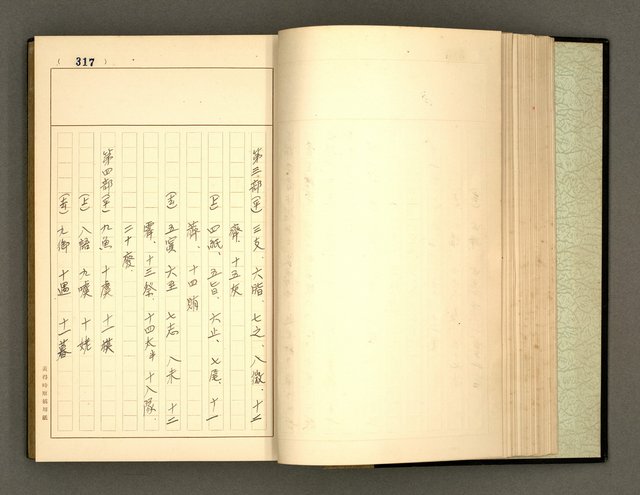 ( 317 )
第三部(平)三支、六脂、七之、八微、十二
齊、十五灰
(上)四紙、五旨、六止、七尾、十一
薺、十四賄
(去)五寘 六至 七志 八未 十二
霽、十三祭、十四太半 十八隊、
二十廢、
第四部(平)九魚 十虞 十一模
(上)八語 九噳 十姥
(去)九御 十遇 十一暮
黃得時原稿用紙